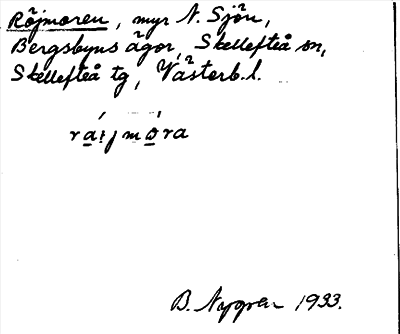 Röjmoren, myr N. Sjön,
Bergsbyns ägor, Skellefteå sn,
Skellefteå tg, Västerb. l.
ra̲i̯jmo̲ra
B. Nygren 1933.